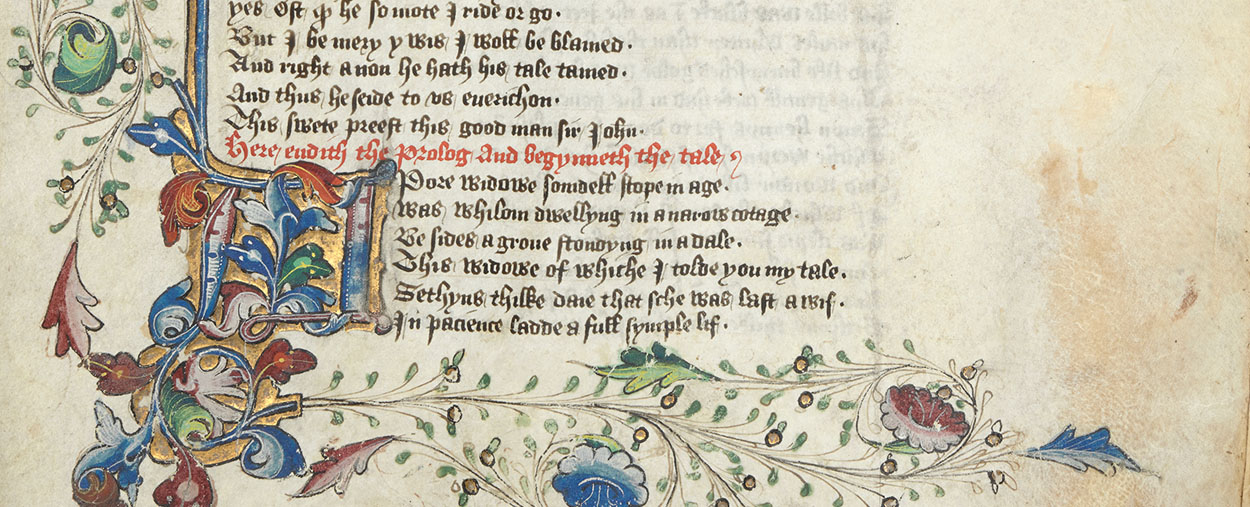 yes Ost ꝑ he so mote I ride or go.
But I be mery y wis I woll be blamed.
And right anon he hath his tale tamed.
And thus he seide to vs euerichon.
This swete preest this good man sir John.
Here endith the Prolog And begynneth the tale
A Pore widowe somdell stope in age.
was whilom dwellyng in a narow cotage.
Be sides a groue stondyng in a dale.
This widowe of whiche I tolde you my tale.
Sethyns thilke daie that sche was last a wif.
In pacience ladde a full symple lif.